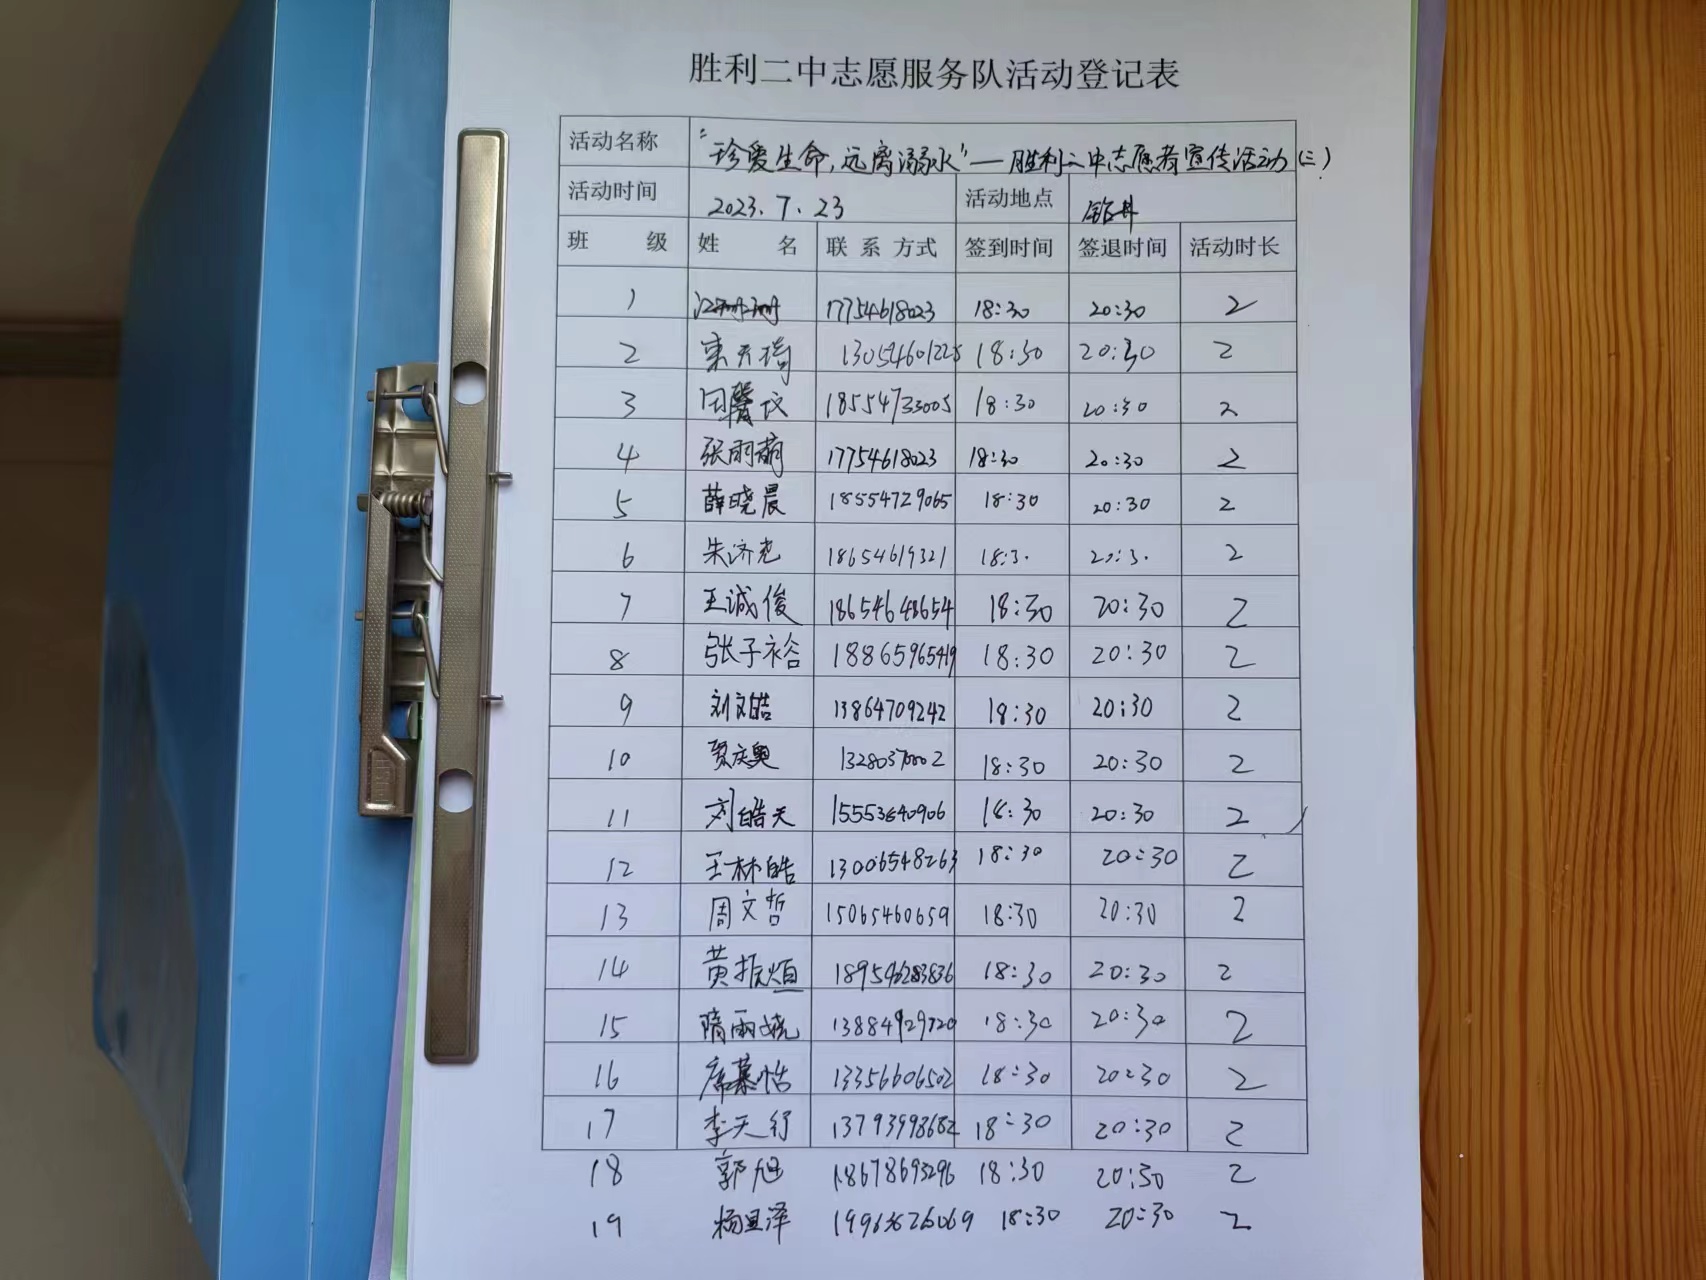 胜利二中志愿服务队活动登记表
活动名称 "珍爱生命,远离溺水"—胜利二中志愿者宣传活动(三)
活动时间 2023.7.23 活动地点 钻井
班 级 姓 名 联系方式 签到时间 签退时间 活动时长
1 17754618023 18:30 20:30 2
2 栾天琦 18:30 20:30 2
3 田馨仪 18554733005 18:30 20:30 2
4 张雨萌 17754618023 18:30 20:30 2
5 薛晓晨 18554729065 18:30 20:30 2
6 朱济尧 18654619321 18:3. 20:3. 2
7 王诚俊 18654648654 18:30 20:30 2
8 张子裕 18865965419 18:30 20:30 2
9 刘文皓 13864709242 18:30 20:30 2
10 贾庆奥 18:30 20:30 2
11 刘皓天 18:30 20:30 2
12 王林皓 13006548263 18:30 20:30 2
13 周文哲 15065460659 18:30 20:30 2
14 黄振烜 189546283836 18:30 20:30 2
15 隋雨娆 13884929720 18:30 20:30 2
16 席慕恬 13356606502 18:30 20:30 2
17 李天行 13793998682 18:30 20:30 2
18 郭旭 18678693296 18:30 20:30 2
19 18:30 20:30 2